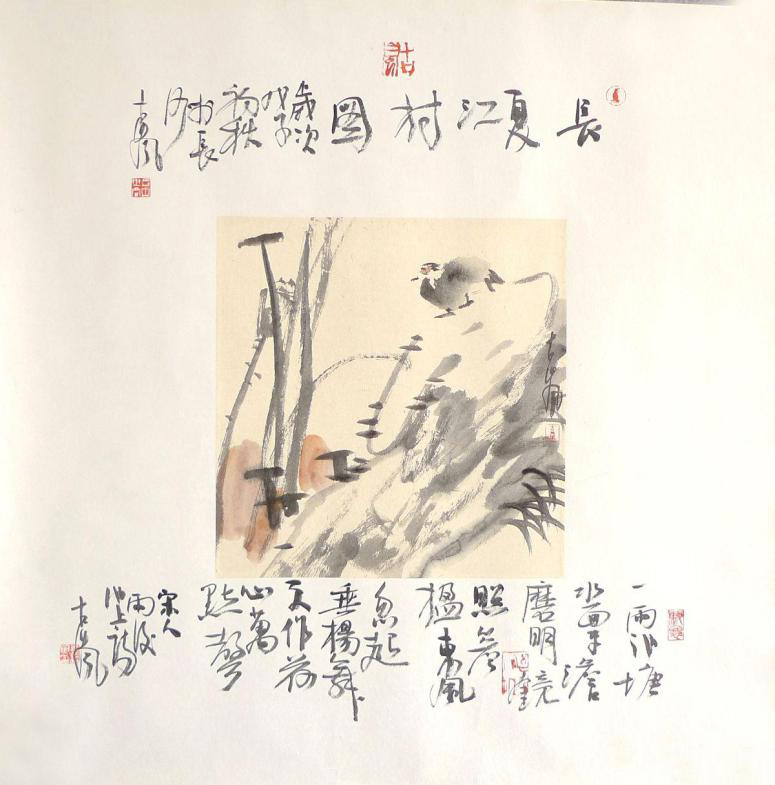 長夏江村圖
歲次
戊子
初秋
书長
古風
一雨池塘
水面平澹
磨明竟
照簷
楹東風
忽起
垂楊舞
更作荷
心萬
點聲
宋人
雨後
池上詩
古風